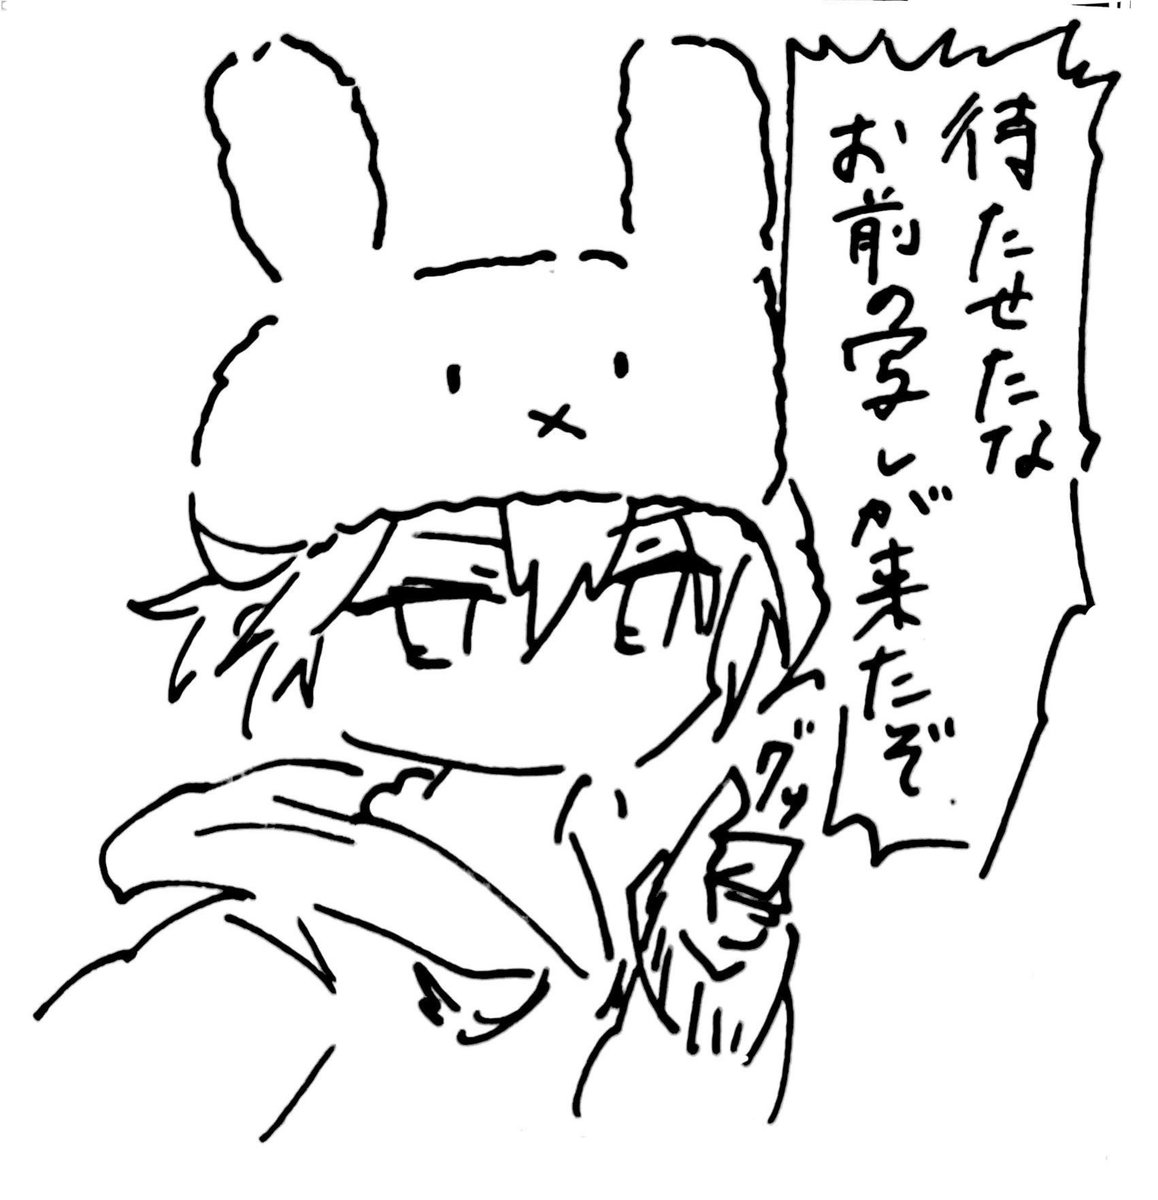 待たせたな
お前の写しが来たぞ
グッ